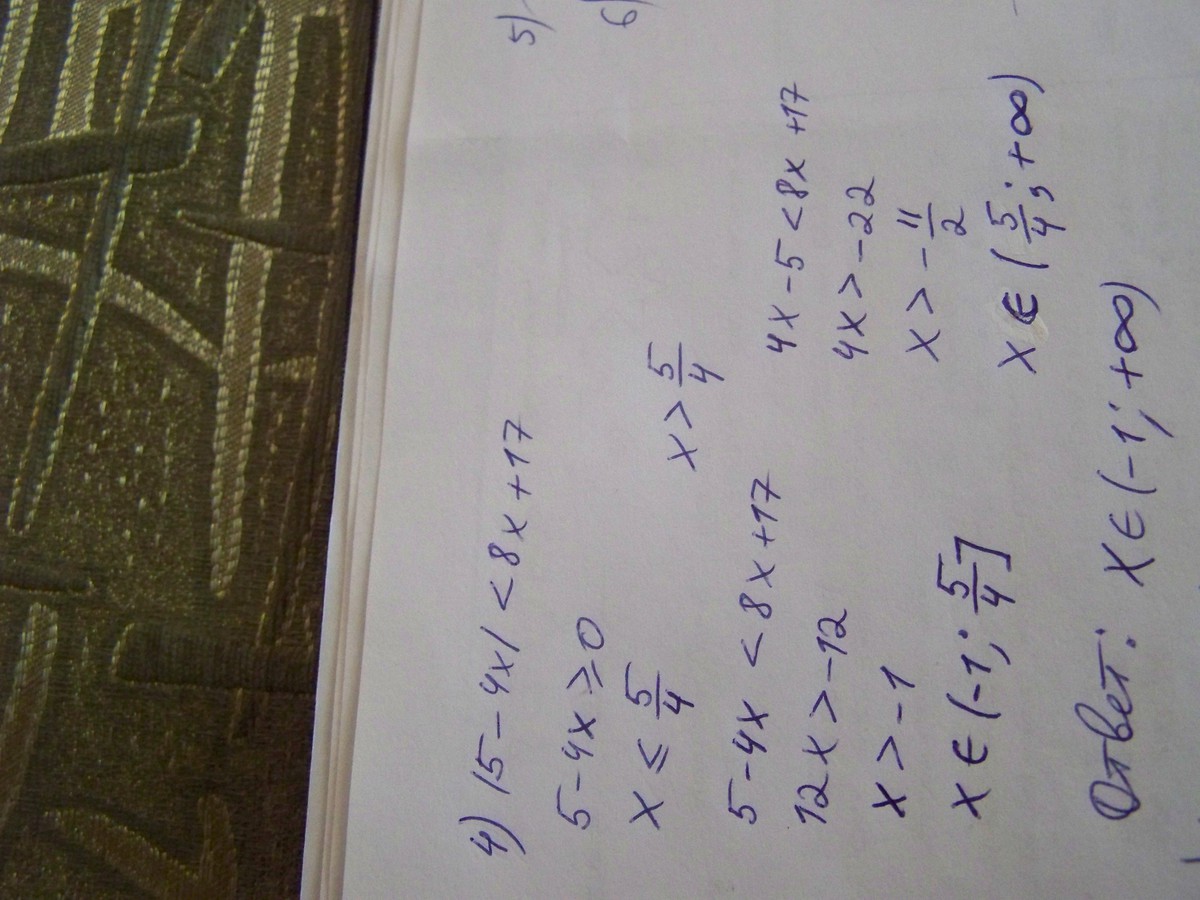 4) |5-4x| < 8x+17
5-4x ≥ 0
x ≤ 5/4
x > 5/4
5-4x < 8x+17
12x > -12
x > -1
x ∈ (-1; 5/4]
4x-5 < 8x+17
4x > -22
x > -11/2
x ∈ (5/4; +∞)
Ответ: x ∈ (-1; +∞)
5)
6)